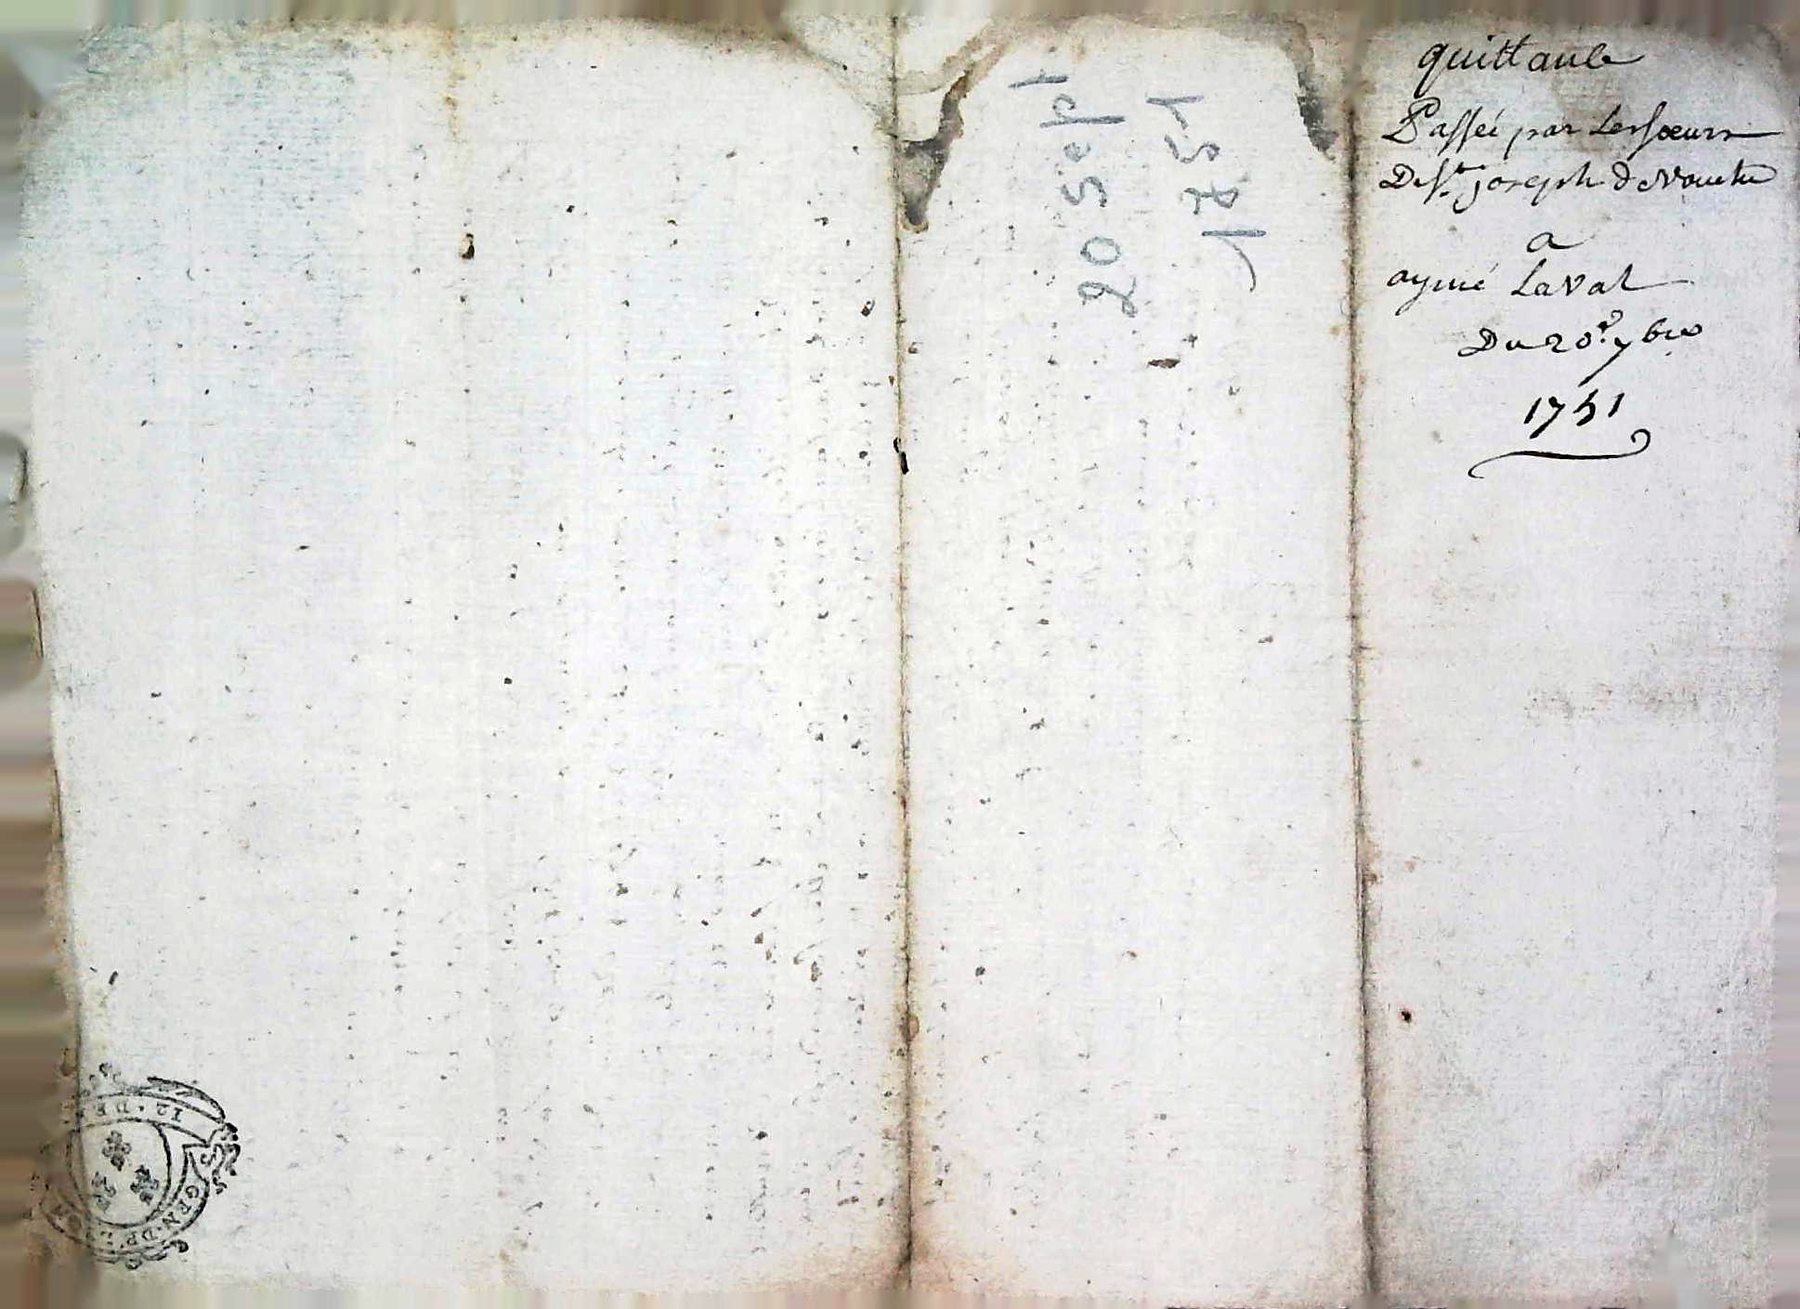 quittance
Passée par les soeurs
De st joseph de vouche
a
aymé Laval
Du 20e 7bre
1751
20 sept
1751
12 · DE
GEN · DE · L